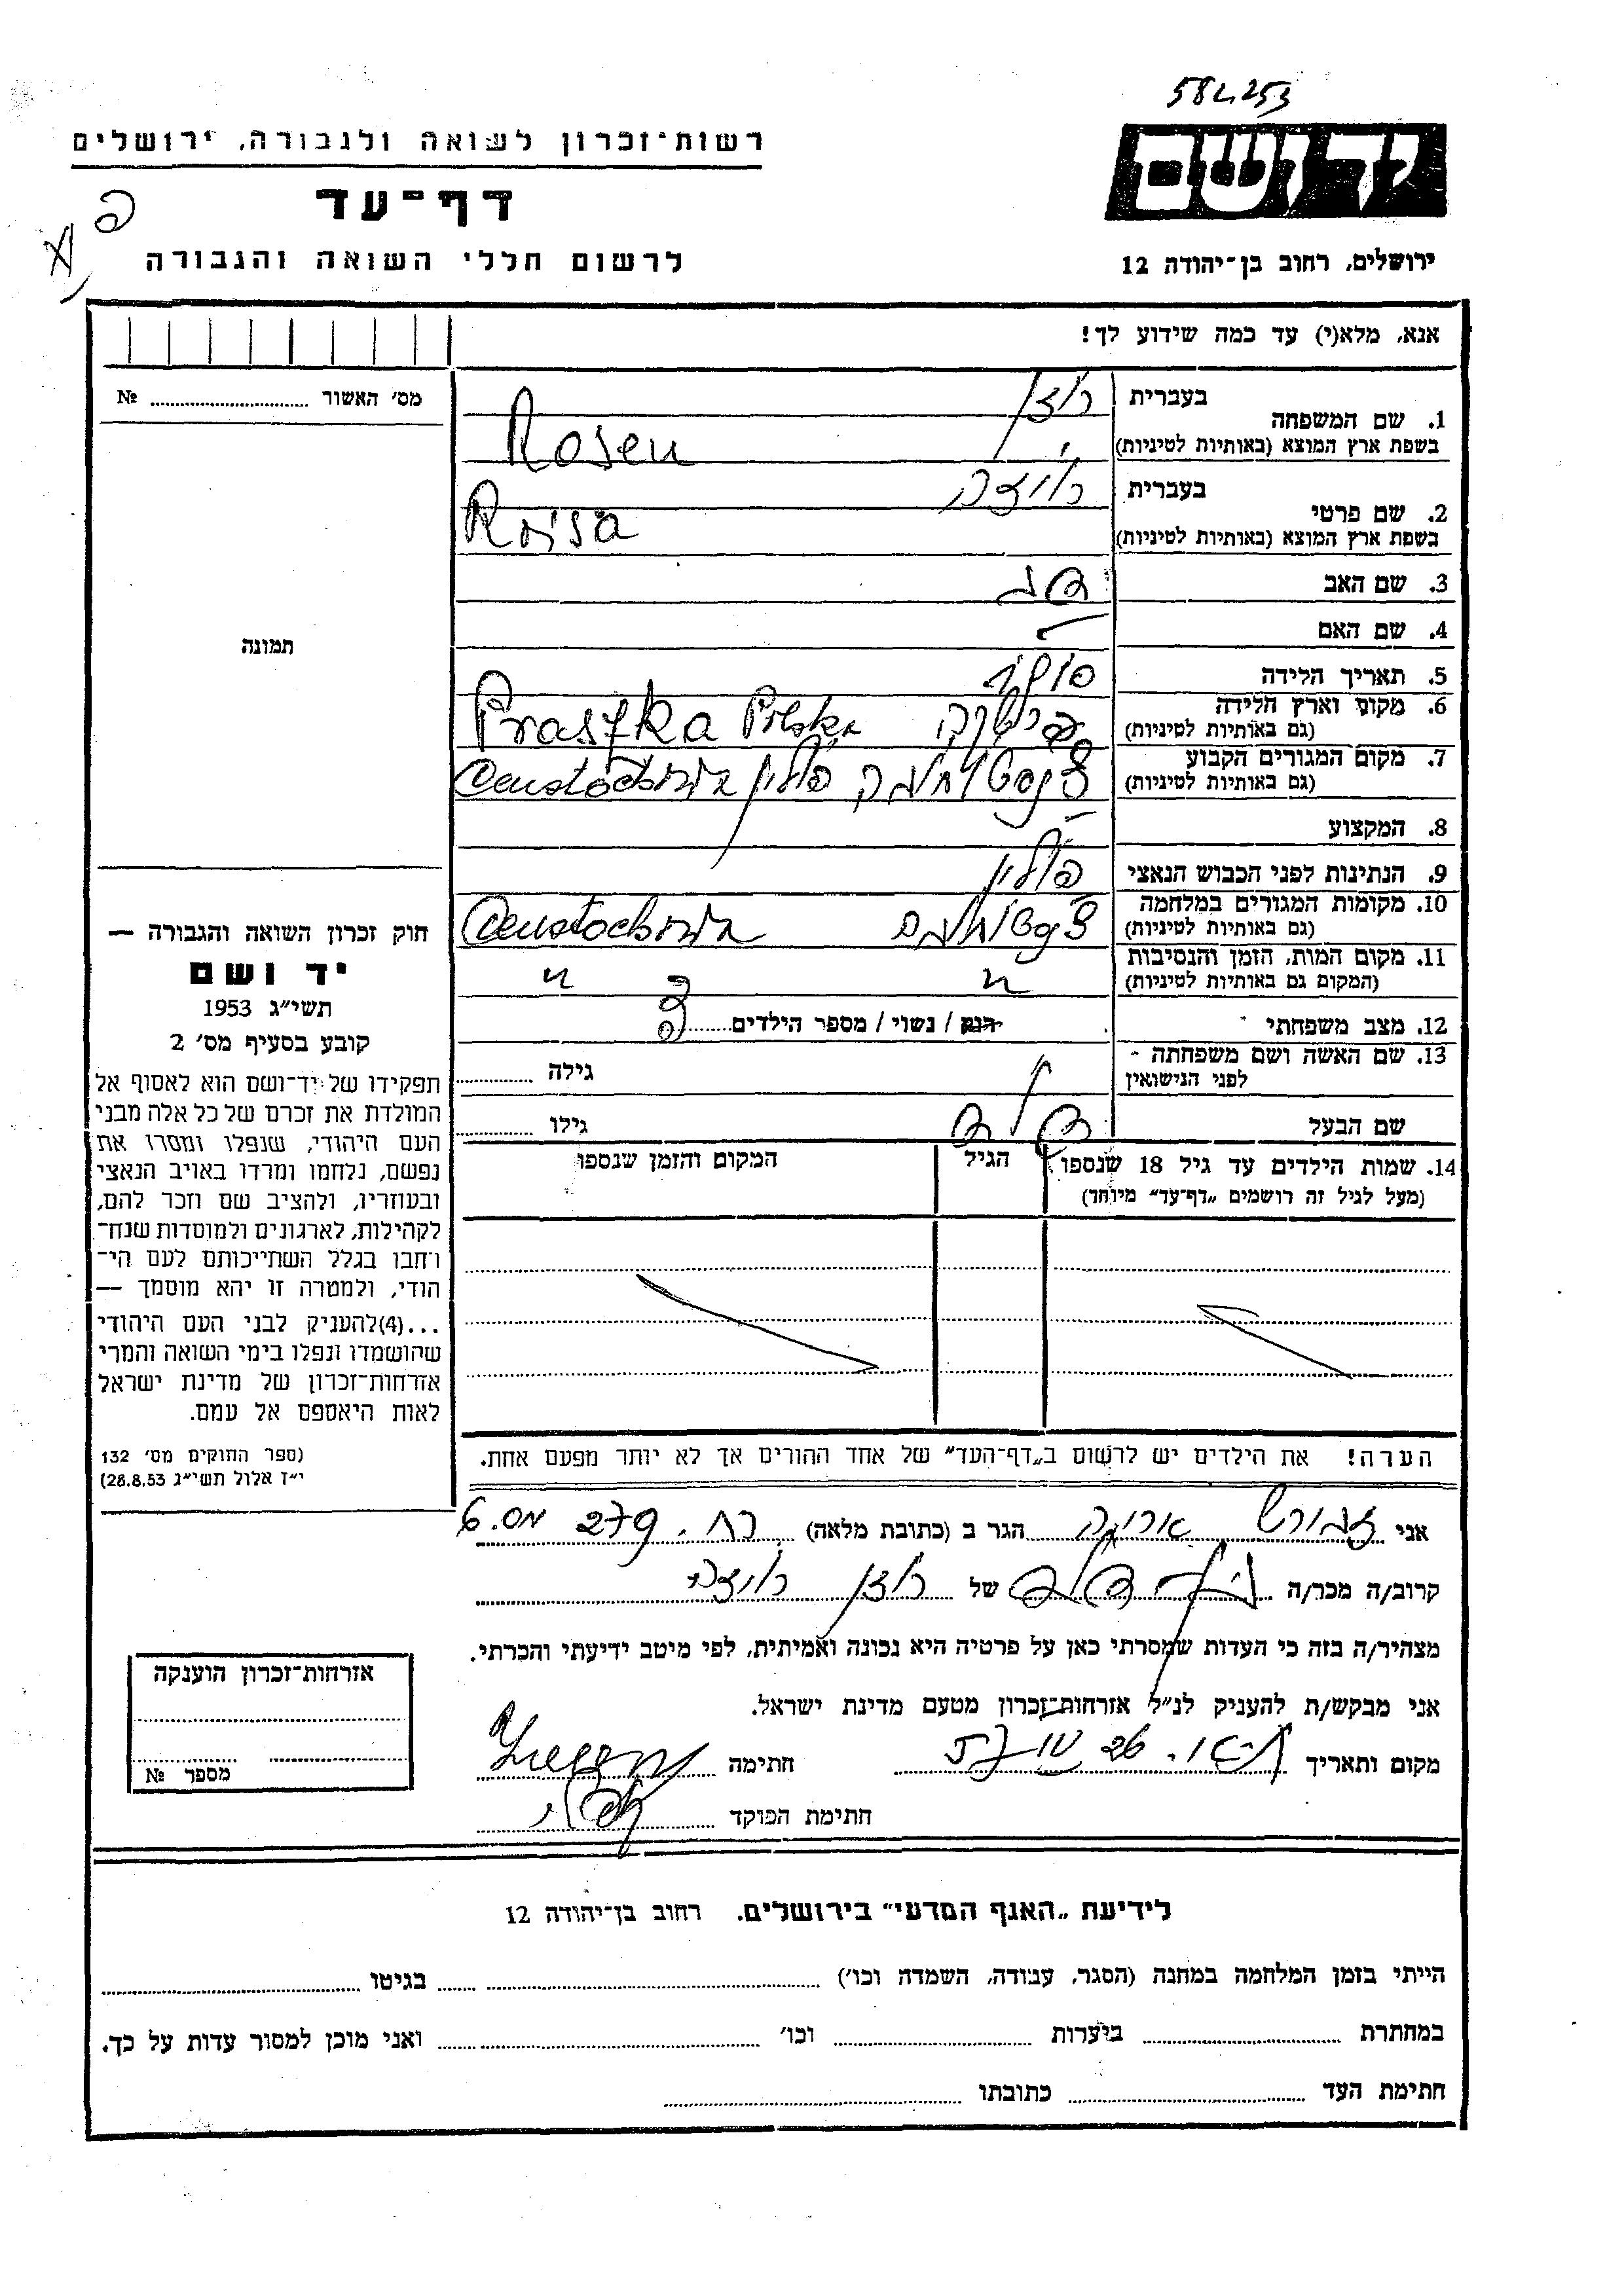 582253
יד ושם
רשות־זכרון לשואה ולגבורה, ירושלים
דף־עד
לרשום חללי השואה והגבורה
ירושלים, רחוב בן־יהודה 12
אנא, מלא(י) עד כמה שידוע לך!
מס׳ האשור № 
1. שם המשפחה
בעברית רוזן
בשפת ארץ המוצא (באותיות לטיניות) Rosen
2. שם פרטי
בעברית רויזה
בשפת ארץ המוצא (באותיות לטיניות) Roisa
3. שם האב
4. שם האם
5. תאריך הלידה
6. מקום וארץ הלידה
(גם באותיות לטיניות) פרשקה Praszka Polska
7. מקום המגורים הקבוע
(גם באותיות לטיניות) צ׳נסטוחובה פולין
8. המקצוע
9. הנתינות לפני הכבוש הנאצי פולין
10. מקומות המגורים במלחמה
(גם באותיות לטיניות) צ׳נסטוחובה
11. מקום המות, הזמן והנסיבות
(המקום גם באותיות לטיניות) " "
12. מצב משפחתי רווק / נשוי / מספר הילדים
13. שם האשה ושם משפחתה
לפני הנישואין גילה
שם הבעל גילו
14. שמות הילדים עד גיל 18 שנספו
(מעל לגיל זה רושמים „דף־עד" מיוחד)
הגיל
המקום והזמן שנספו
הערה! את הילדים יש לרשום ב„דף־העד" של אחד ההורים אך לא יותר מפעם אחת.
תמונה
חוק זכרון השואה והגבורה —
יד ושם
תשי״ג 1953
קובע בסעיף מס׳ 2
תפקידו של יד־ושם הוא לאסוף אל
המולדת את זכרם של כל אלה מבני
העם היהודי, שנפלו ומסרו את
נפשם, נלחמו ומרדו באויב הנאצי
ובעוזריו, ולהציב שם וזכר להם,
לקהילות, לארגונים ולמוסדות שנח־
רבו בגלל השתייכותם לעם הי־
הודי, ולמטרה זו יהא מוסמך —
...(4)להעניק לבני העם היהודי
שהושמדו ונפלו בימי השואה והמרי
אזרחות־זכרון של מדינת ישראל
לאות היאספם אל עמם.
(ספר החוקים מס׳ 132
י״ז אלול תשי״ג 28.8.53)
אני הגר ב (כתובת מלאה) רח. 279 מס. 6
קרוב/ה מכר/ה של רוזן רויזה
מצהיר/ה בזה כי העדות שמסרתי כאן על פרטיה היא נכונה ואמיתית, לפי מיטב ידיעתי והכרתי.
אני מבקש/ת להעניק לנ״ל אזרחות־זכרון מטעם מדינת ישראל.
מקום ותאריך חתימה
חתימת הפוקד
אזרחות־זכרון הוענקה
מספר №
לידיעת „האגף המדעי" בירושלים, רחוב בן־יהודה 12
הייתי בזמן המלחמה במחנה (הסגר, עבודה, השמדה וכו׳) בגיטו
במחתרת ביערות וכו׳ ואני מוכן למסור עדות על כך.
חתימת העד כתובתו